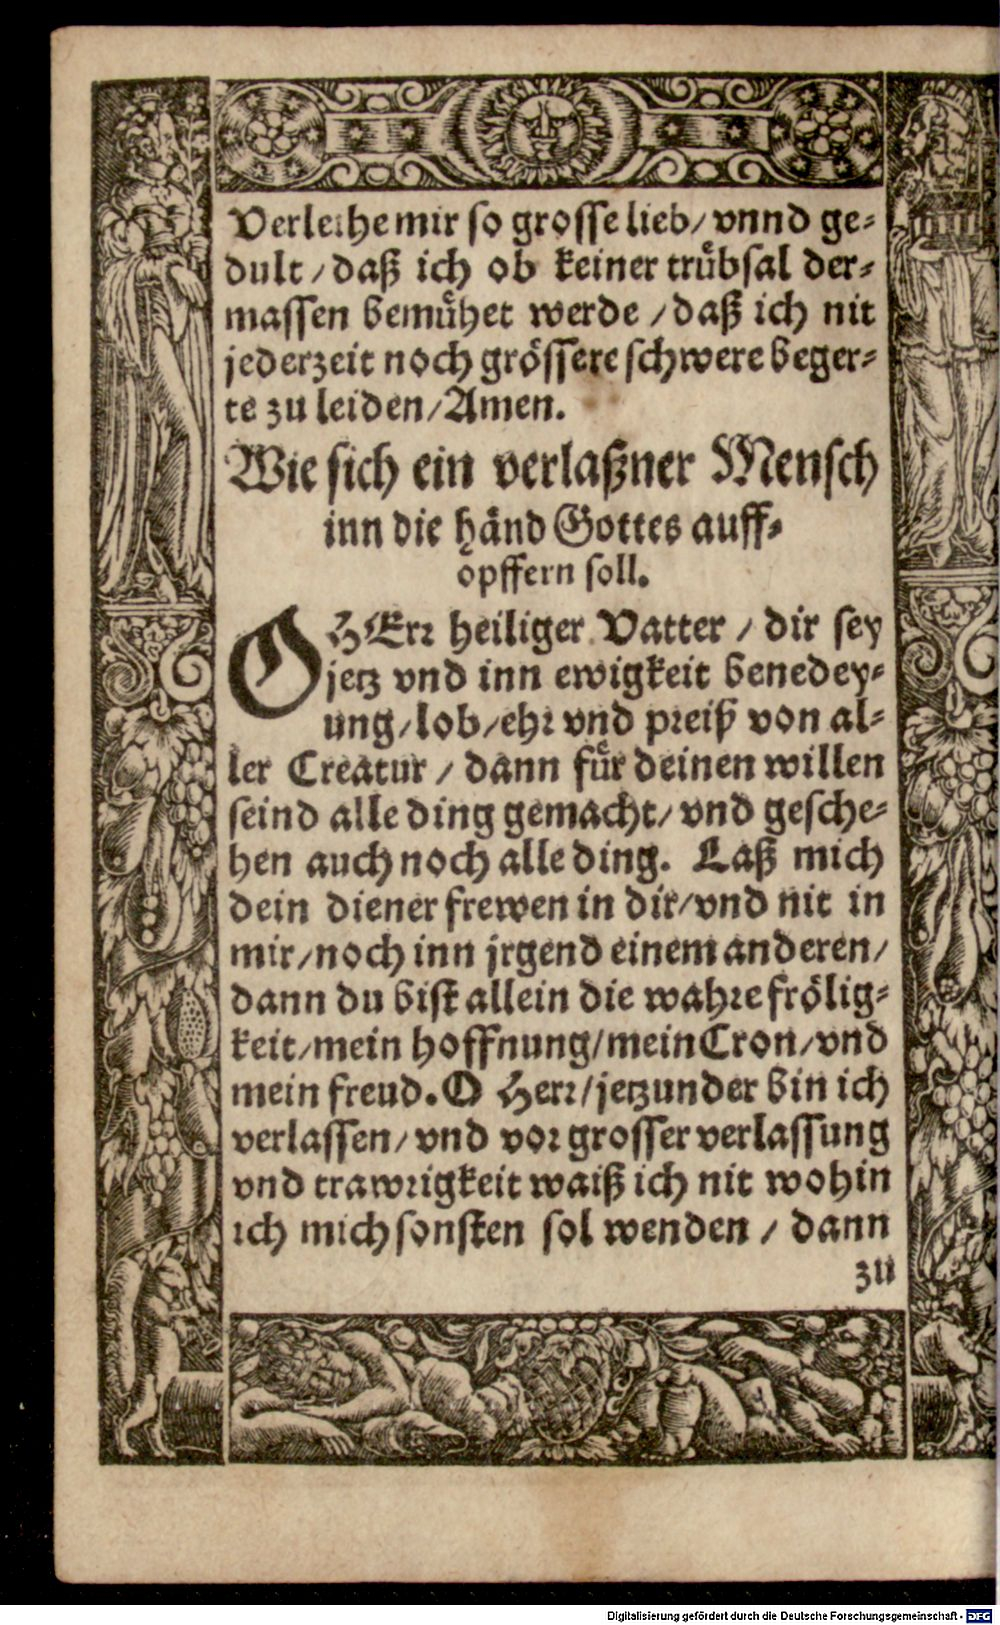 Verleihe mir so grosse lieb/ vnnd ge⸗
dult/ daß ich ob keiner truͤbsal der⸗
massen bemuͤhet werde/ daß ich nit
jederzeit noch groͤssere schwere beger⸗
te zu leiden/ Amen.
Wie sich ein verlaßner Mensch
inn die haͤnd Gottes auff⸗
opffern soll.
O HErr heiliger Vatter/ dir sey
jetz vnd inn ewigkeit benedey⸗
ung/ lob/ ehr vnd preiß von al⸗
ler Creatur/ dann fuͤr deinen willen
seind alle ding gemacht/ vnd gesche⸗
hen auch noch alle ding. Laß mich
dein diener frewen in dir/ vnd nit in
mir/ noch inn jrgend einem anderen/
dann du bist allein die wahre froͤlig⸗
keit/ mein hoffnung/ mein Cron/ vnd
mein freud. O Herr/ jetzunder bin ich
verlassen/ vnd vor grosser verlassung
vnd trawrigkeit waiß ich nit wohin
ich mich sonsten sol wenden/ dann
zu
Digitalisierung gefördert durch die Deutsche Forschungsgemeinschaft - DFG